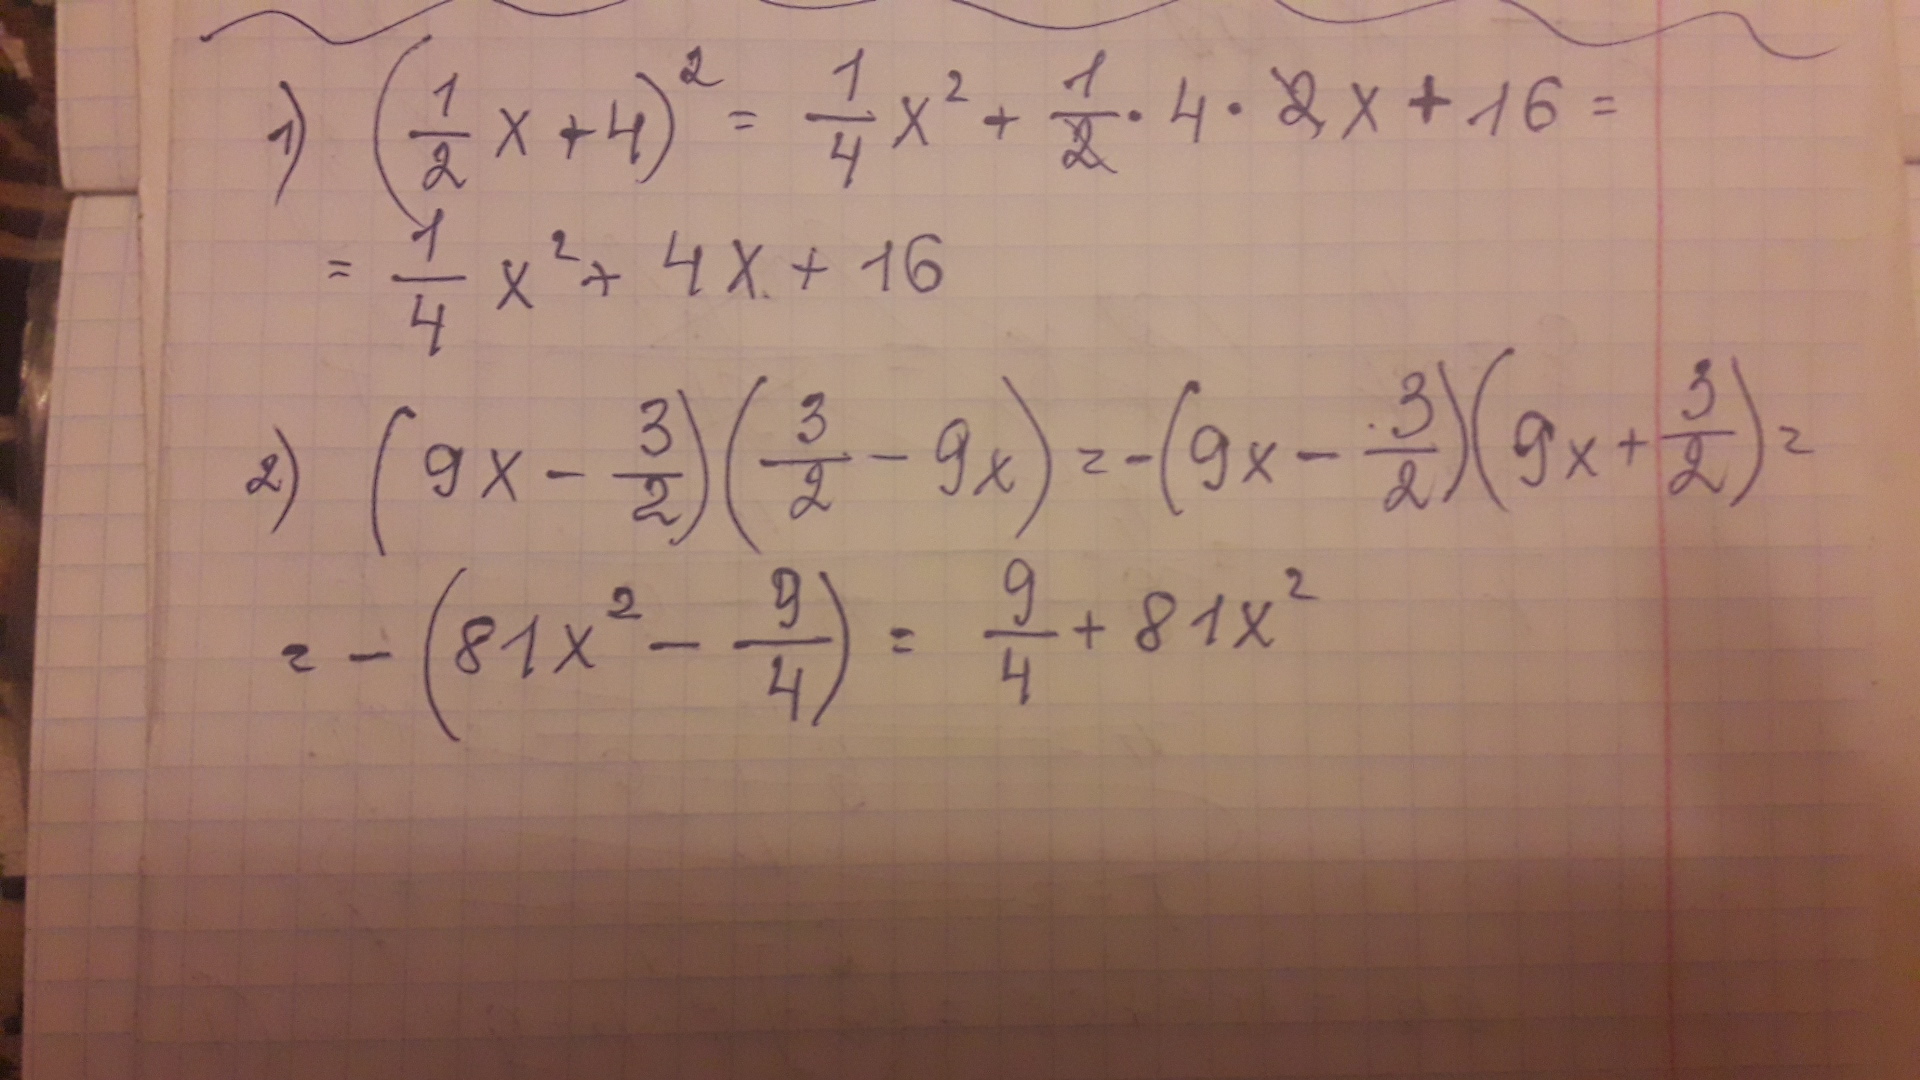 1) (1/2 x + 4)² = 1/4 x² + 1/2 · 4 · 2x + 16 =
= 1/4 x² + 4x + 16
2) (9x - 3/2)(3/2 - 9x) = -(9x - 3/2)(9x + 3/2) =
= -(81x² - 9/4) = 9/4 + 81x²